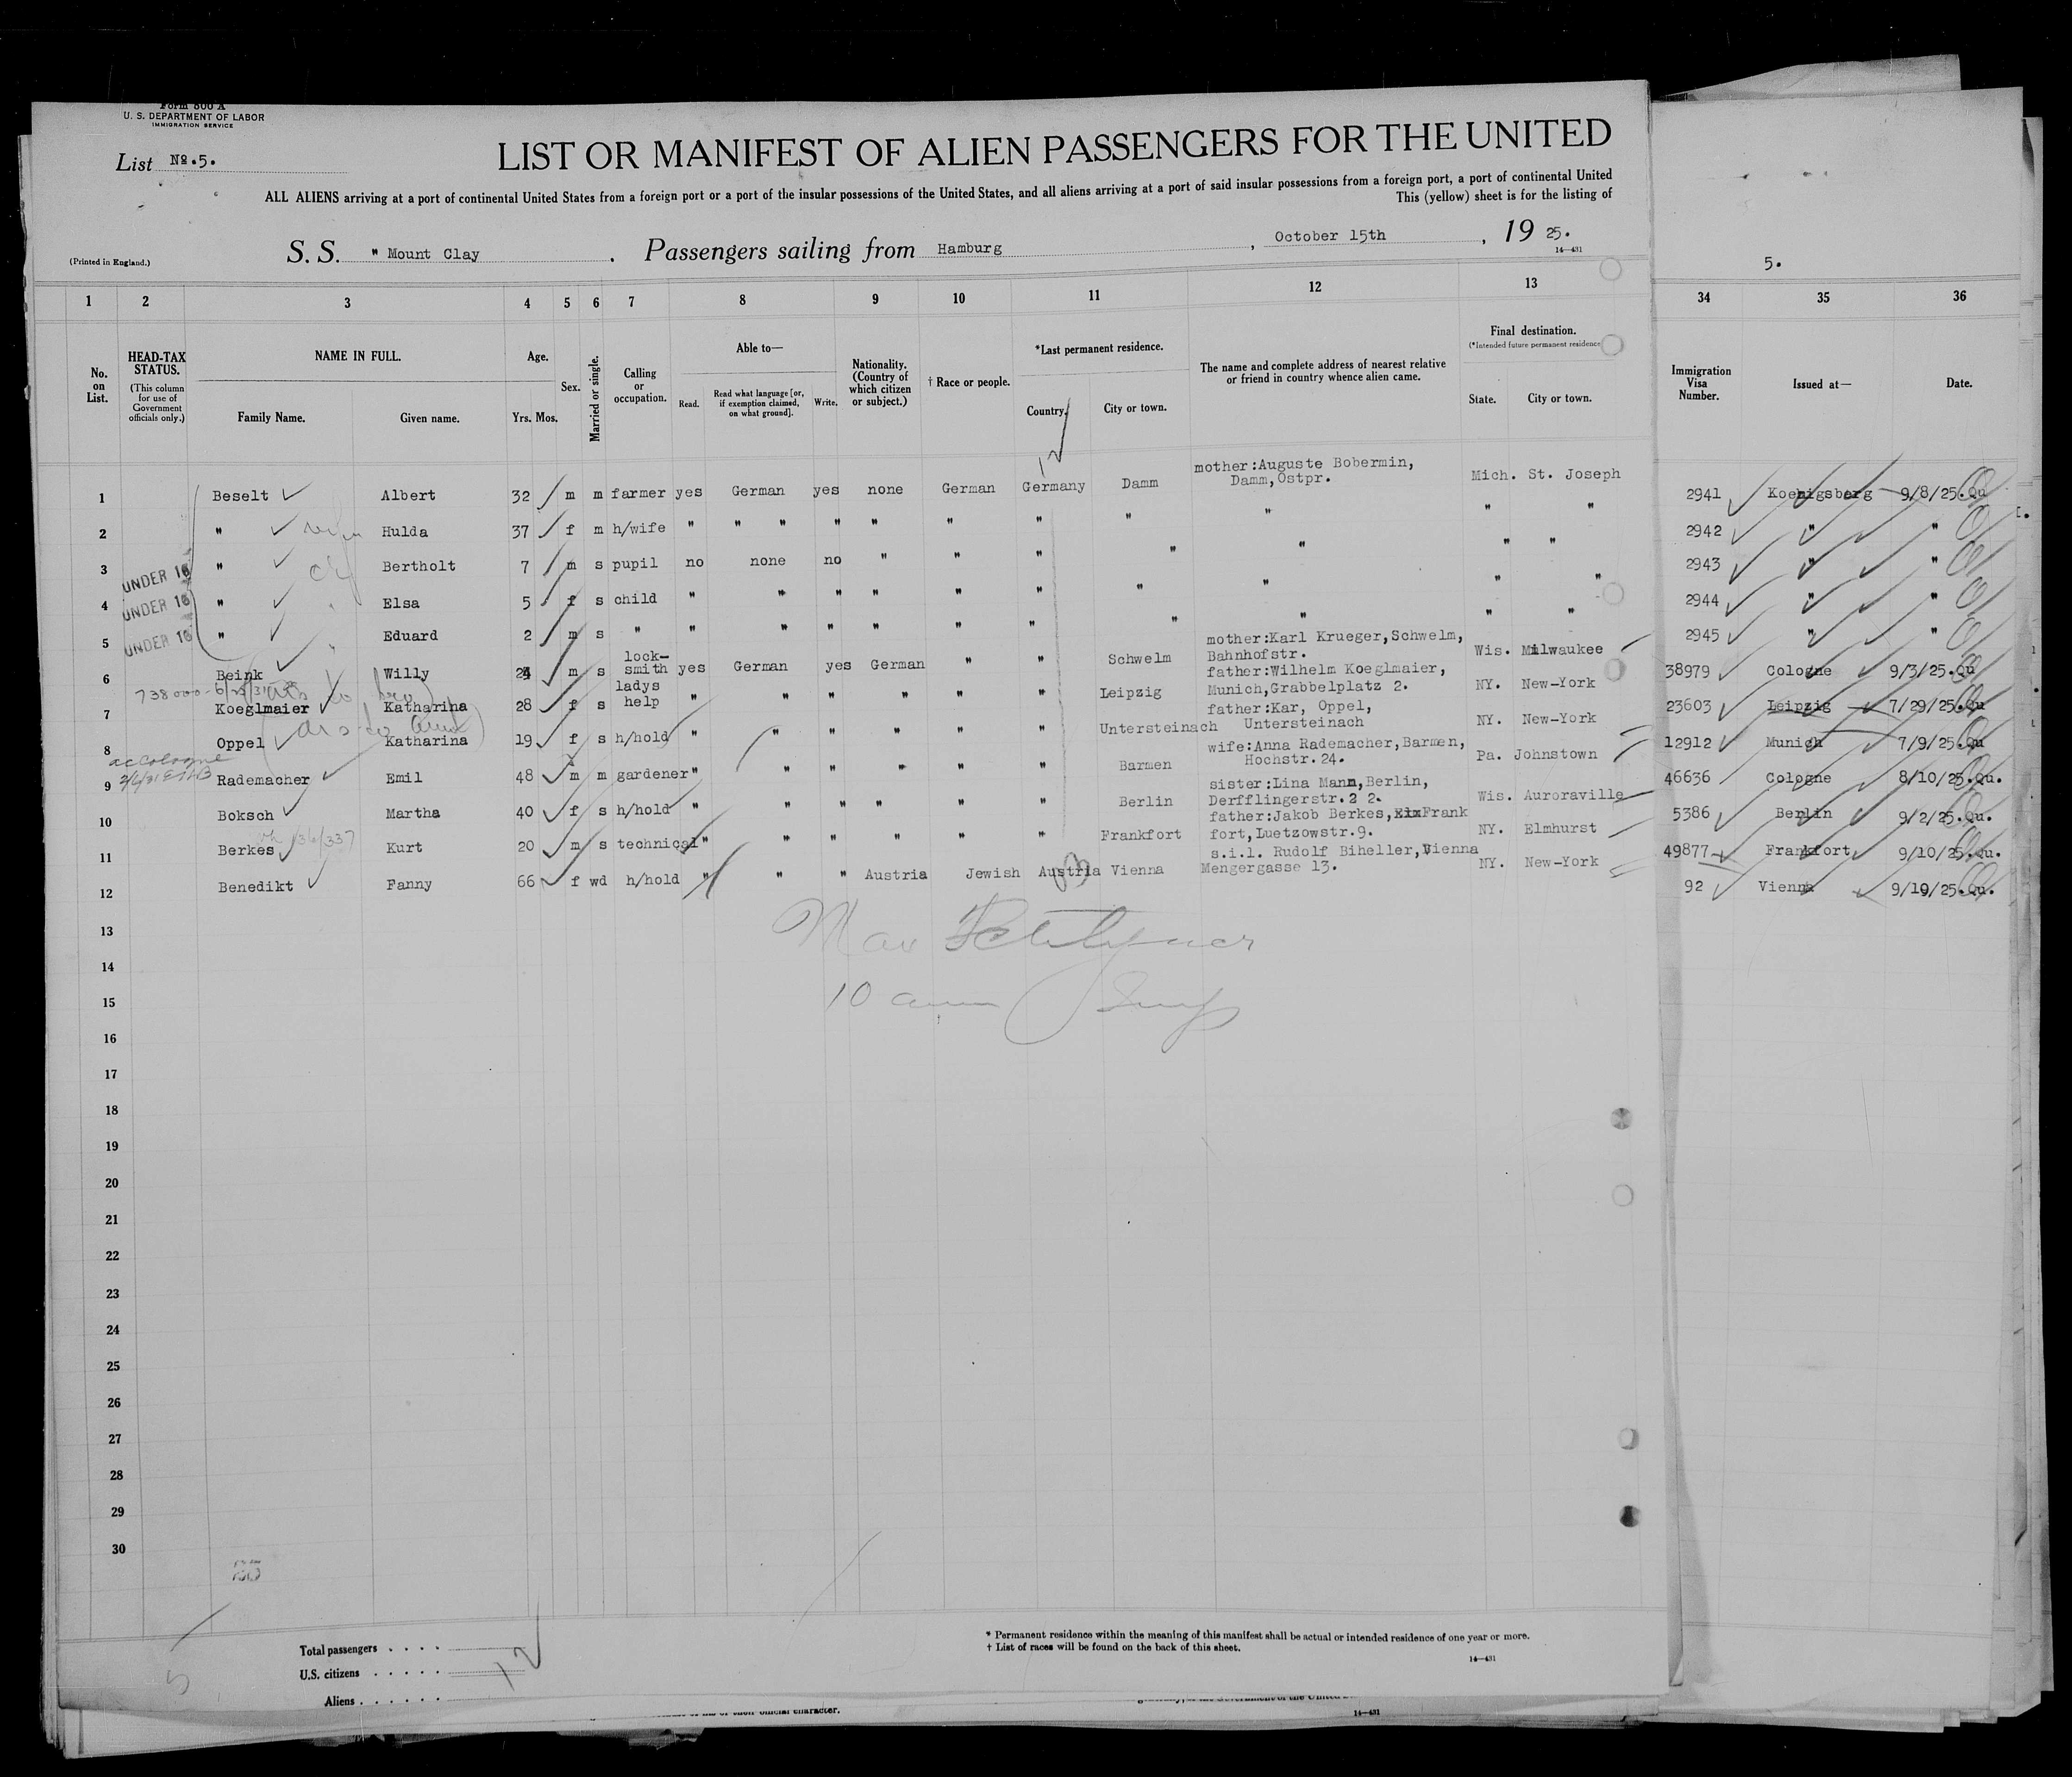 Form 600 A
U. S. DEPARTMENT OF LABOR
IMMIGRATION SERVICE
List No.5.
LIST OR MANIFEST OF ALIEN PASSENGERS FOR THE UNITED
ALL ALIENS arriving at a port of continental United States from a foreign port or a port of the insular possessions of the United States, and all aliens arriving at a port of said insular possessions from a foreign port, a port of continental United
This (yellow) sheet is for the listing of
(Printed in England.)
S. S. " Mount Clay , Passengers sailing from Hamburg , October 15th , 19 25.
14—431
5.
1 2 3 4 5 6 7 8 9 10 11 12 13 34 35 36
No. on List.
HEAD-TAX STATUS.
(This column for use of Government officials only.)
NAME IN FULL.
Family Name. Given name.
Age.
Yrs. Mos.
Sex.
Married or single.
Calling or occupation.
Able to—
Read. Read what language [or, if exemption claimed, on what ground]. Write.
Nationality. (Country of which citizen or subject.)
† Race or people.
*Last permanent residence.
Country. City or town.
The name and complete address of nearest relative or friend in country whence alien came.
Final destination.
(*Intended future permanent residence
State. City or town.
Immigration Visa Number.
Issued at—
Date.
1 Beselt Albert 32 m m farmer yes German yes none German Germany Damm mother:Auguste Bobermin, Damm,Ostpr. Mich. St. Joseph 2941 Koenigsberg 9/8/25.Qu
2 " Hulda 37 f m h/wife " " " " " " " " " " " 2942 " "
UNDER 16
3 " Bertholt 7 m s pupil no none no " " " " " " " 2943 " "
UNDER 16
4 " Elsa 5 f s child " " " " " " " " " " 2944 " "
UNDER 16
5 " Eduard 2 m s " " " " " " " " " " " 2945 " "
6 Beink Willy 24 m s lock-smith yes German yes German " " Schwelm mother:Karl Krueger,Schwelm, Bahnhofstr. Wis. Milwaukee 38979 Cologne 9/3/25.Qu
7 Koeglmaier Katharina 28 f s ladys help " " " " " " Leipzig father:Wilhelm Koeglmaier, Munich,Grabbelplatz 2. NY. New-York 23603 Leipzig 7/29/25.Qu
8 Oppel Katharina 19 f s h/hold " " " " " " Untersteinach father:Kar, Oppel, Untersteinach NY. New-York 12912 Munich 7/9/25.Qu
9 Rademacher Emil 48 m m gardener " " " " " " Barmen wife:Anna Rademacher,Barmen, Hochstr.24. Pa. Johnstown 46636 Cologne 8/10/25.Qu.
10 Boksch Martha 40 f s h/hold " " " " " " Berlin sister:Lina Mann,Berlin, Derfflingerstr.2 2. Wis. Auroraville 5386 Berlin 9/2/25.Qu.
11 Berkes Kurt 20 m s technical " " " " " " Frankfort father:Jakob Berkes, Frank fort,Luetzowstr.9. NY. Elmhurst 49877 Frankfort 9/10/25.Qu.
12 Benedikt Fanny 66 f wd h/hold " " " Austria Jewish Austria Vienna s.i.l. Rudolf Biheller,Vienna Mengergasse 13. NY. New-York 92 Vienna 9/10/25.Qu.
13
14
15
16
17
18
19
20
21
22
23
24
25
26
27
28
29
30
Total passengers . . . .
U.S. citizens . . . . .
Aliens . . . . . .
12
* Permanent residence within the meaning of this manifest shall be actual or intended residence of one year or more.
† List of races will be found on the back of this sheet.
14—431
official character.
14—431